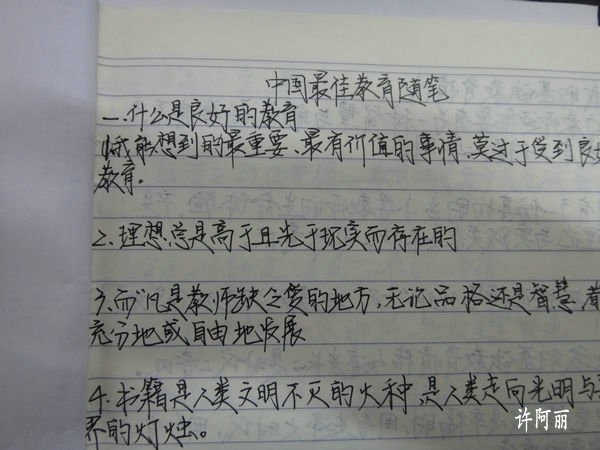 中国最佳教育随笔
一.什么是良好的教育
1.我能想到的最重要、最有价值的事情,莫过于受到良好
教育。
2.理想总是高于且先于现实而存在的
3.而"凡是教师缺乏爱的地方,无论品格还是智慧,都
充分地或自由地发展
4.书籍是人类文明不灭的火种,是人类走向光明与
界的灯烛。
许阿丽